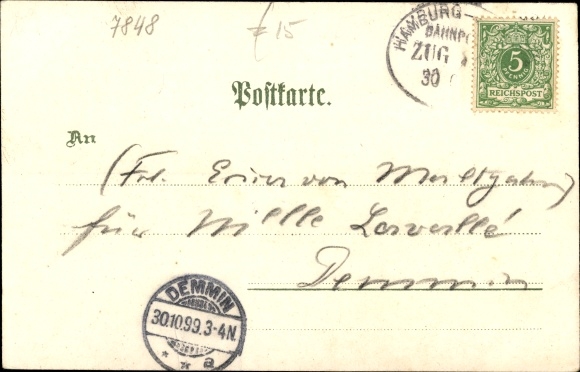 7848
£ 15
HAMBURG
BAHNPO
ZUG
30
5
PFENNIG
REICHSPOST
Postkarte.
An
(Frl. von
für Mlle
Demmin
DEMMIN
30.10.99.3-4N.
* * a